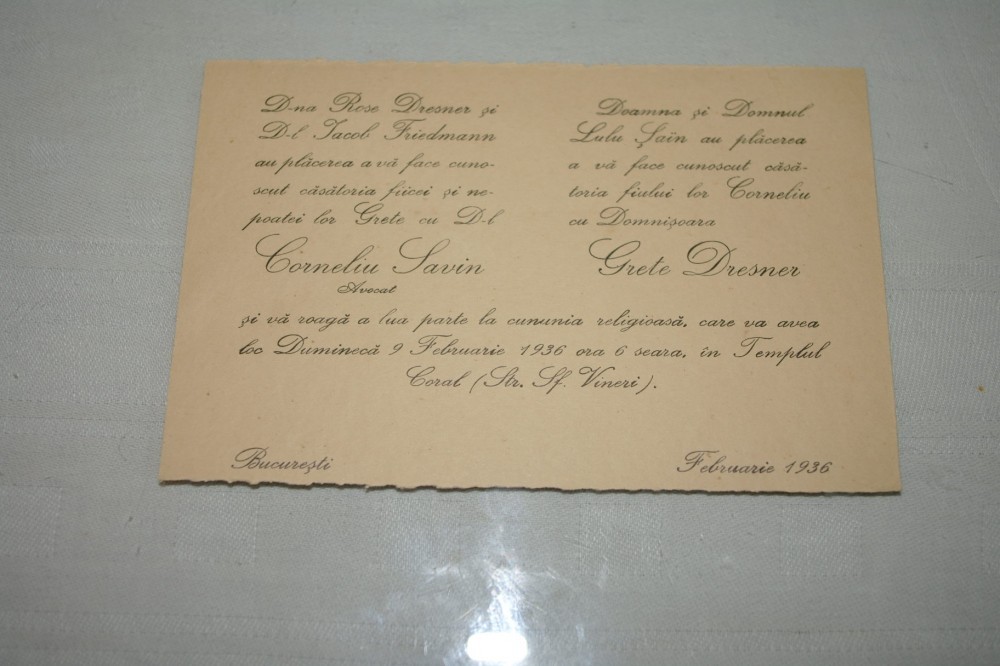 D-na Rose Dresner și
D-l Jacob Friedmann
au plăcerea a vă face cuno-
scut căsătoria fiicei și ne-
poatei lor Grete cu D-l
Corneliu Savin
Avocat
Doamna și Domnul
Lulu Șaïn au plăcerea
a vă face cunoscut căsă-
toria fiului lor Corneliu
cu Domnișoara
Grete Dresner
și vă roagă a lua parte la cununia religioasă, care va avea
loc Duminecă 9 Februarie 1936 ora 6 seara, în Templul
Coral (Str. Sf. Vineri).
București
Februarie 1936